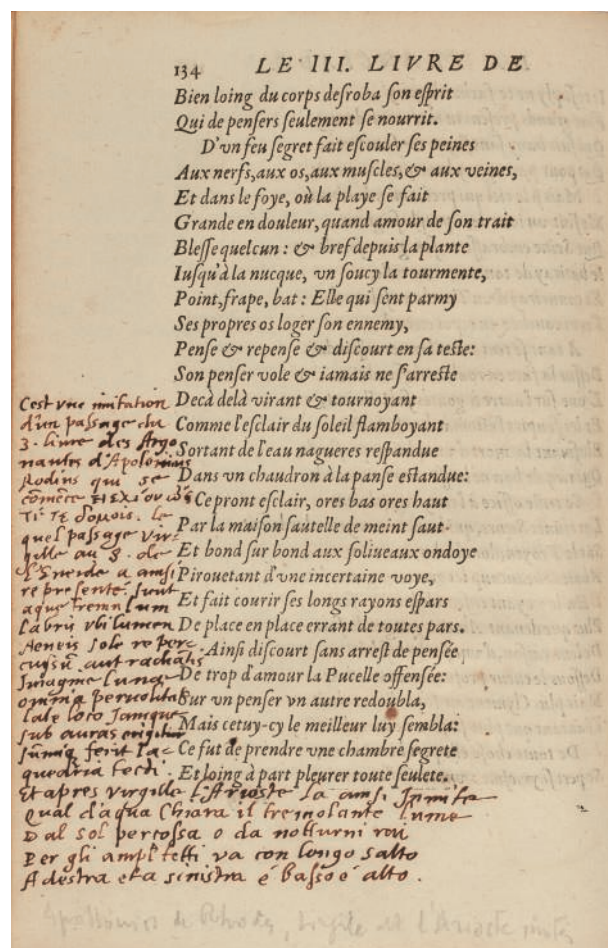 134 LE III. LIVRE DE
Bien loing du corps desroba son esprit
Qui de pensers seulement se nourrit.
D'vn feu segret fait escouler ses peines
Aux nerfs, aux os, aux muscles, & aux veines,
Et dans le foye, où la playe se fait
Grande en douleur, quand amour de son trait
Blesse quelcun: & bref depuis la plante
Iusqu'à la nucque, vn soucy la tourmente,
Point, frape, bat: Elle qui sent parmy
Ses propres os loger son ennemy,
Pense & repense & discourt en sa teste:
Son penser vole & iamais ne s'arreste
Decà delà virant & tournoyant
Comme l'esclair du soleil flamboyant
Sortant de l'eau nagueres respandue
Dans vn chaudron à la panse estandue:
Ce pront esclair, ores bas ores haut
Par la maison sautelle de meint saut.
Et bond sur bond aux soliueaux ondoye
Pirouetant d'vne incertaine voye,
Et fait courir ses longs rayons espars
De place en place errant de toutes pars.
Ainsi discourt sans arrest de pensée
De trop d'amour la Pucelle offensée:
Sur vn penser vn autre redoubla,
Mais cetuy-cy le meilleur luy sembla:
Ce fut de prendre vne chambre segrete
Et loing à part pleurer toute seulete.
Cest vne imitation
d'un passage du
3. liure des Argo
nautes d'Apolonius
Rodius qui se
cōmēce ΗΕΛΙΟΥ ὥς
τίς τε δόμοις. le
quel passage vir
gille au 8. de
l'Eneide a ainsi
represente. sicut
aquæ tremulum
labris vbi lumen
Aeneis sole reper
cussū aut radiātis
Imagine lunæ
omnia peruolitat
late loco Jamque
sub auras erigitur
sūmiq ferit la-
quearia tecti.
Et apres virgille l'Arioste la ainsi Jmite
Qual d'aqua Chiara il tremolante lume
Dal sol percossa o da notturni rai
Per gli ampl tetti va con longo salto
A destra et a sinistra é basso é alto.
Apollonios de Rhodes, Virgile et l'Arioste